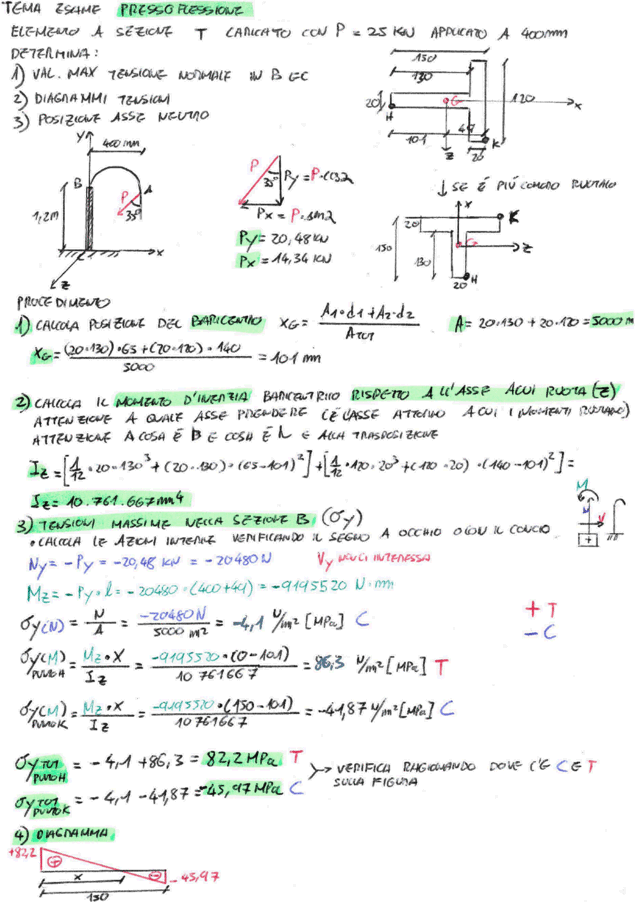 TEMA ESAME PRESSOFLESSIONE
ELEMENTO A SEZIONE T CARICATO CON P = 25 KN APPLICATO A 400mm
DETERMINA:
1) VAL. MAX TENSIONE NORMALE IN B E C
2) DIAGRAMMI TENSIONI
3) POSIZIONE ASSE NEUTRO
150
130
20
H
G
x
120
101
49
z
20
K
y
400 mm
B
A
P
35°
1,2m
C
x
z
P
35°
Py = P·cos α
Px = P·sin α
Py = 20,48 KN
Px = 14,34 KN
↓ SE È PIÙ COMODO RUOTALO
x
K
20
G
z
150
130
20
H
PROCEDIMENTO
1) CALCOLA POSIZIONE DEL BARICENTRO XG = A1·d1 + A2·d2 / ATOT A = 20·130 + 20·120 = 5000 m
XG = (20·130)·65 + (20·120)·140 / 5000 = 101 mm
2) CALCOLA IL MOMENTO D'INERZIA BARICENTRICO RISPETTO ALL'ASSE A CUI RUOTA (Z)
ATTENZIONE A QUALE ASSE PRENDERE (È L'ASSE ATTORNO A CUI I MOMENTI RUOTANO)
ATTENZIONE A COSA È B E COSA È h E ALLA TRASPOSIZIONE
Iz = [1/12 · 20·130³ + (20·130)·(65-101)²] + [1/12 · 120·20³ + (120·20)·(140-101)²] =
Iz = 10.761.667 mm⁴
3) TENSIONI MASSIME NELLA SEZIONE B (σy)
• CALCOLA LE AZIONI INTERNE VERIFICANDO IL SEGNO A OCCHIO O CON IL CONCIO
M
N
V
Ny = -Py = -20,48 KN = -20480 N Vy NON CI INTERESSA
Mz = -Py·l = -20480·(400+49) = -9195520 N·mm
σy(N) = N/A = -20480N / 5000 m² = -4,1 N/m² [MPa] C
+ T
- C
σy(M) PUNTO H = Mz·X / Iz = -9195520·(0-101) / 10761667 = 86,3 N/m² [MPa] T
σy(M) PUNTO K = Mz·X / Iz = -9195520·(150-101) / 10761667 = -41,87 N/m² [MPa] C
σy TOT PUNTO H = -4,1 + 86,3 = 82,2 MPa T
σy TOT PUNTO K = -4,1 - 41,87 = -45,97 MPa C
VERIFICA RAGIONANDO DOVE C'È C E T
SULLA FIGURA
4) DIAGRAMMA
+82,2
+
-
-45,97
x
150